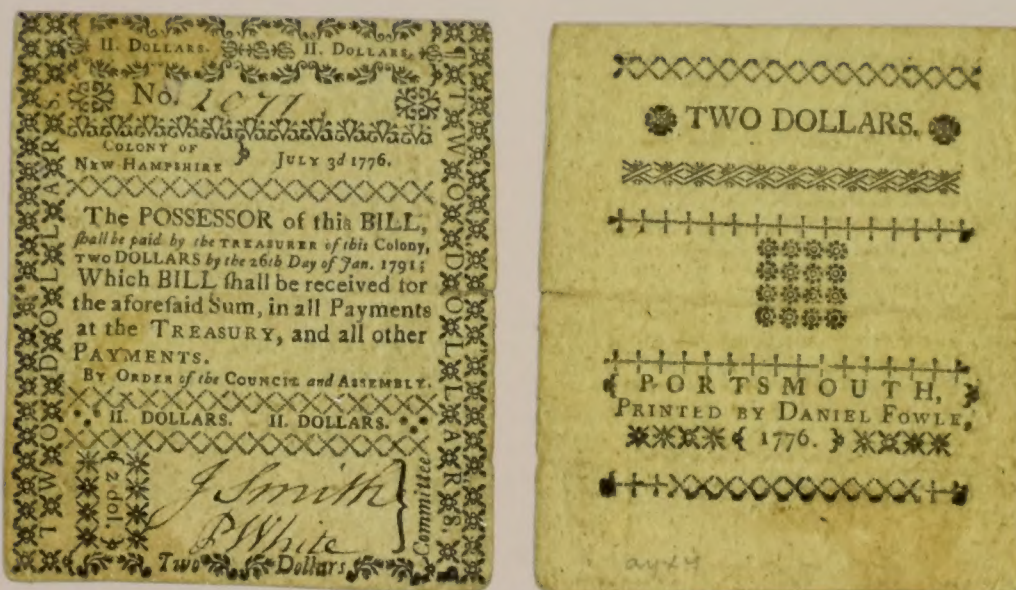 II. DOLLARS. II. DOLLARS.
No. 1071
COLONY OF
NEW-HAMPSHIRE } JULY 3d 1776.
The POSSESSOR of this BILL,
ſhall be paid by the TREASURER of this Colony,
TWO DOLLARS by the 26th Day of Jan. 1791;
Which BILL ſhall be received for
the aforeſaid Sum, in all Payments
at the TREASURY, and all other
PAYMENTS.
BY ORDER of the COUNCIL and ASSEMBLY.
II. DOLLARS. II. DOLLARS.
{ 2 dol. }
J Smith
P White
} Committee
Two Dollars
TWO DOLLARS
TWO DOLLARS
TWO DOLLARS.
PORTSMOUTH,
PRINTED BY DANIEL FOWLE,
{ 1776. }